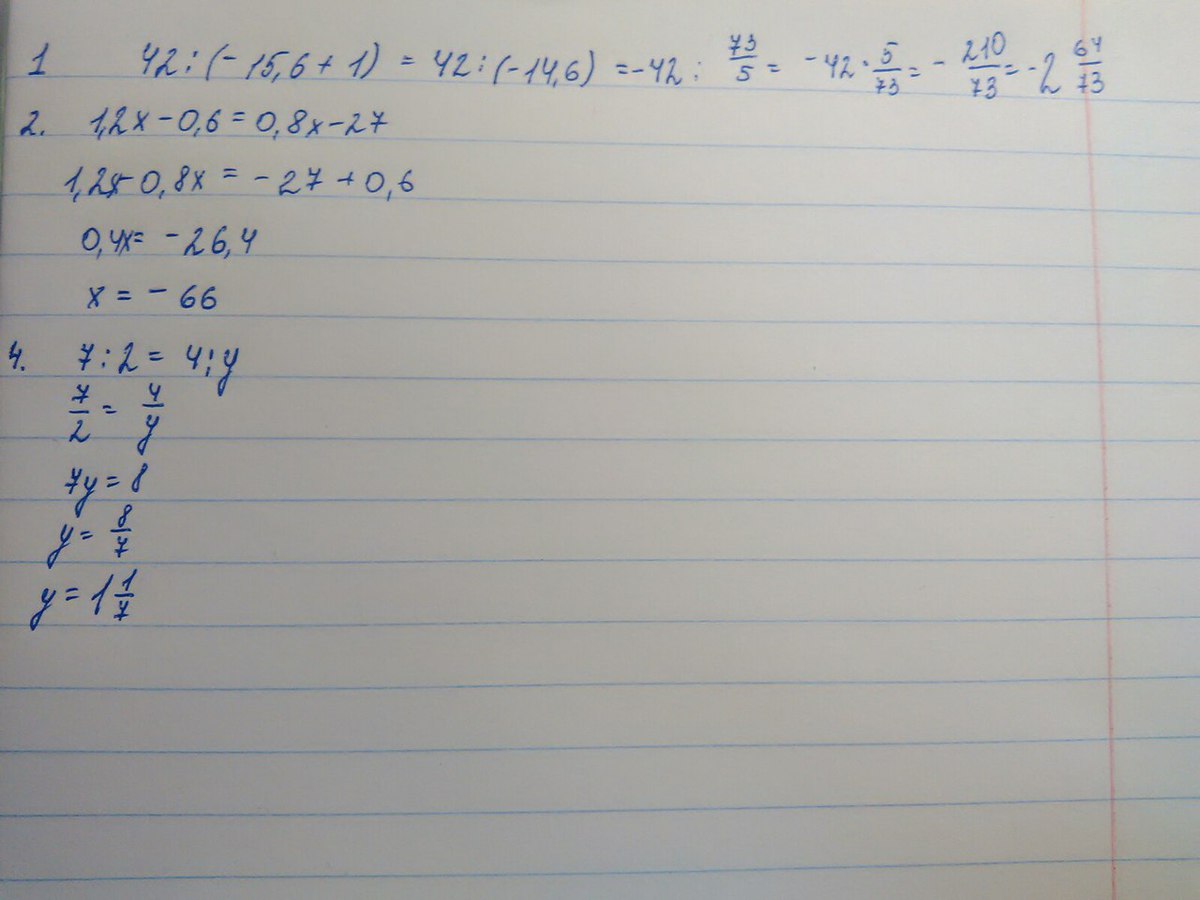 1 42 : (-15,6 + 1) = 42 : (-14,6) = -42 : 73/5 = -42 · 5/73 = - 210/73 = -2 64/73
2. 1,2x - 0,6 = 0,8x - 27
1,2x - 0,8x = - 27 + 0,6
0,4x = - 26,4
x = - 66
4. 7 : 2 = 4 : y
7/2 = 4/y
7y = 8
y = 8/7
y = 1 1/7